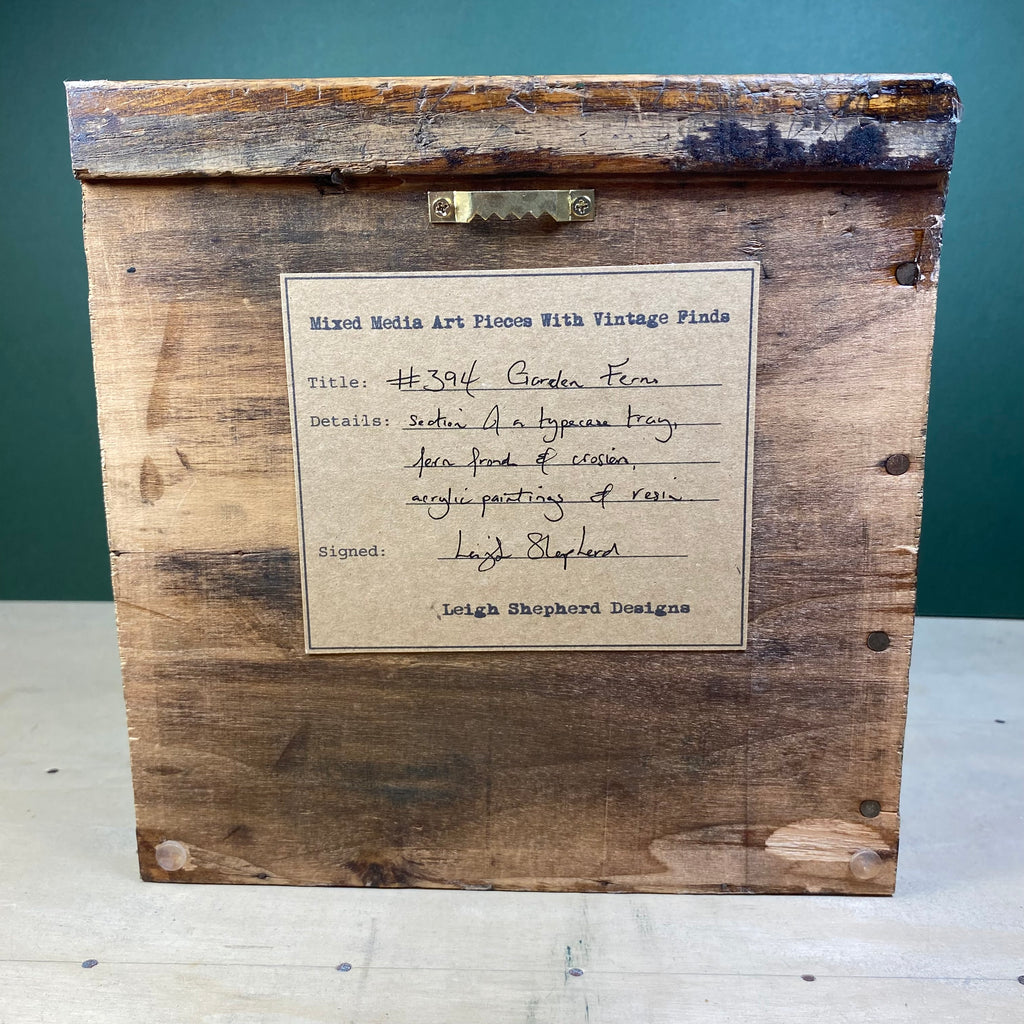 Mixed Media Art Pieces With Vintage Finds
Title: #394 Garden Ferns
Details: section of a typecase tray,
fern frond & crosien,
acrylic paintings & resin
Signed: Leigh Shepherd
Leigh Shepherd Designs